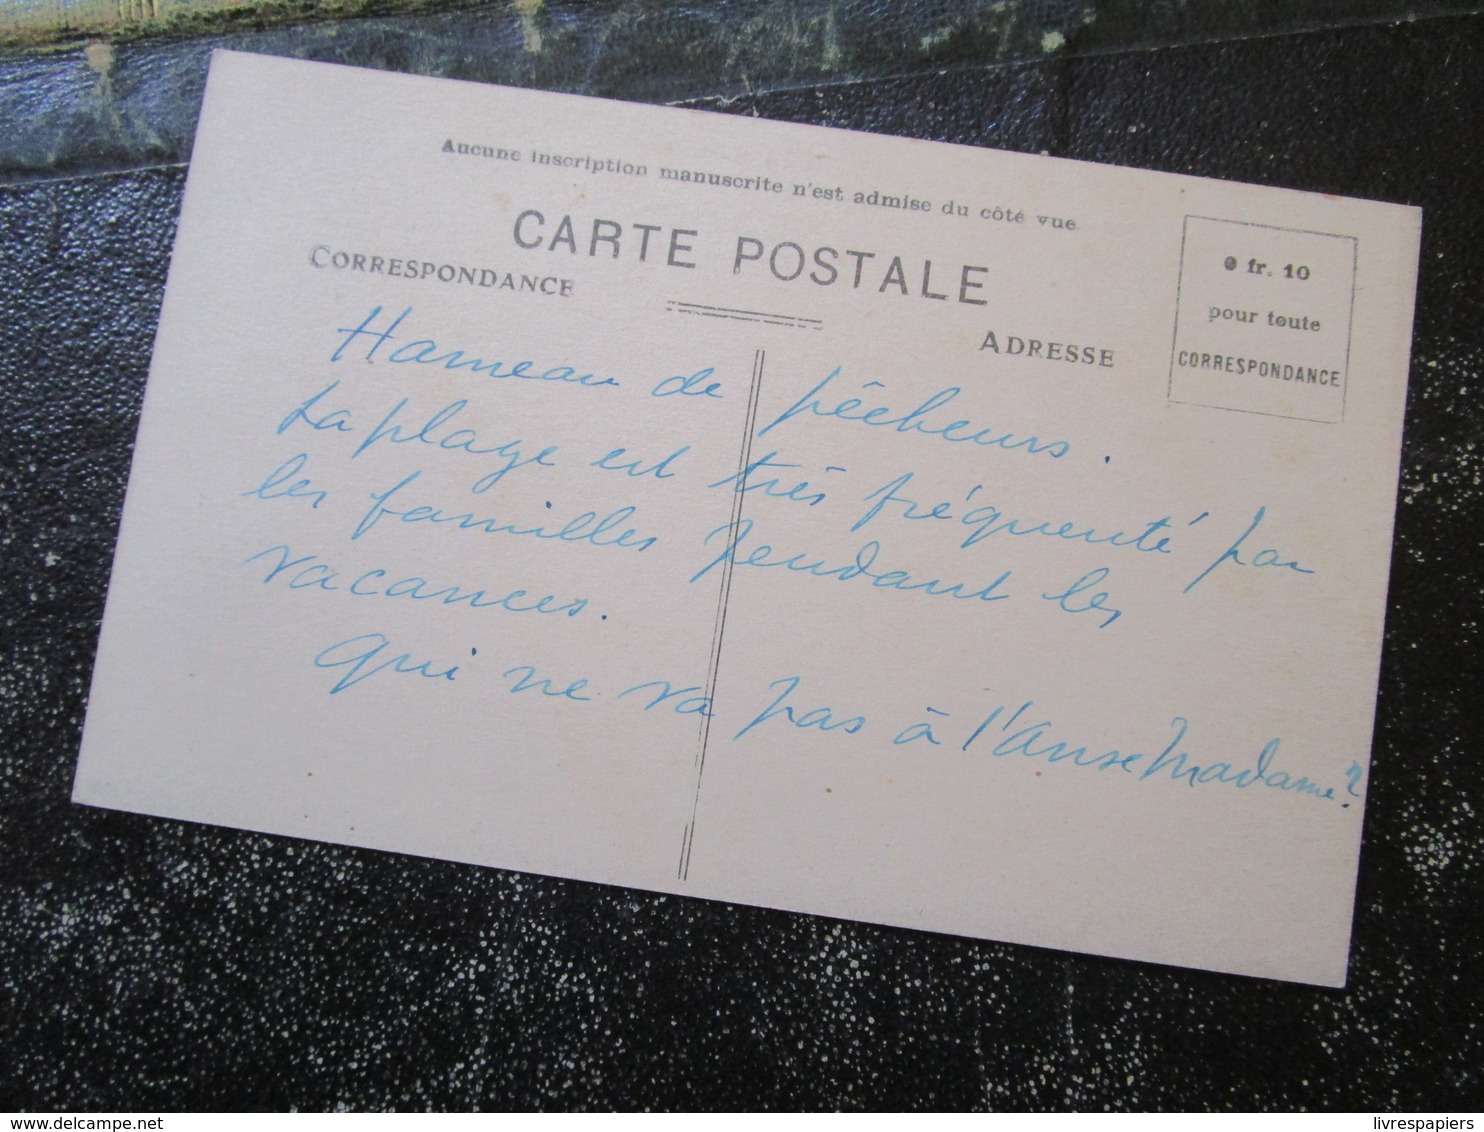 Aucune inscription manuscrite n'est admise du côté vue
CARTE POSTALE
CORRESPONDANCE
ADRESSE
0 fr. 10
pour toute
CORRESPONDANCE
Hameau de pêcheurs.
La plage est très fréquenté par
les familles pendant les
vacances.
Qui ne va pas à l'Anse Madame?
delcampe.net
livrespapiers